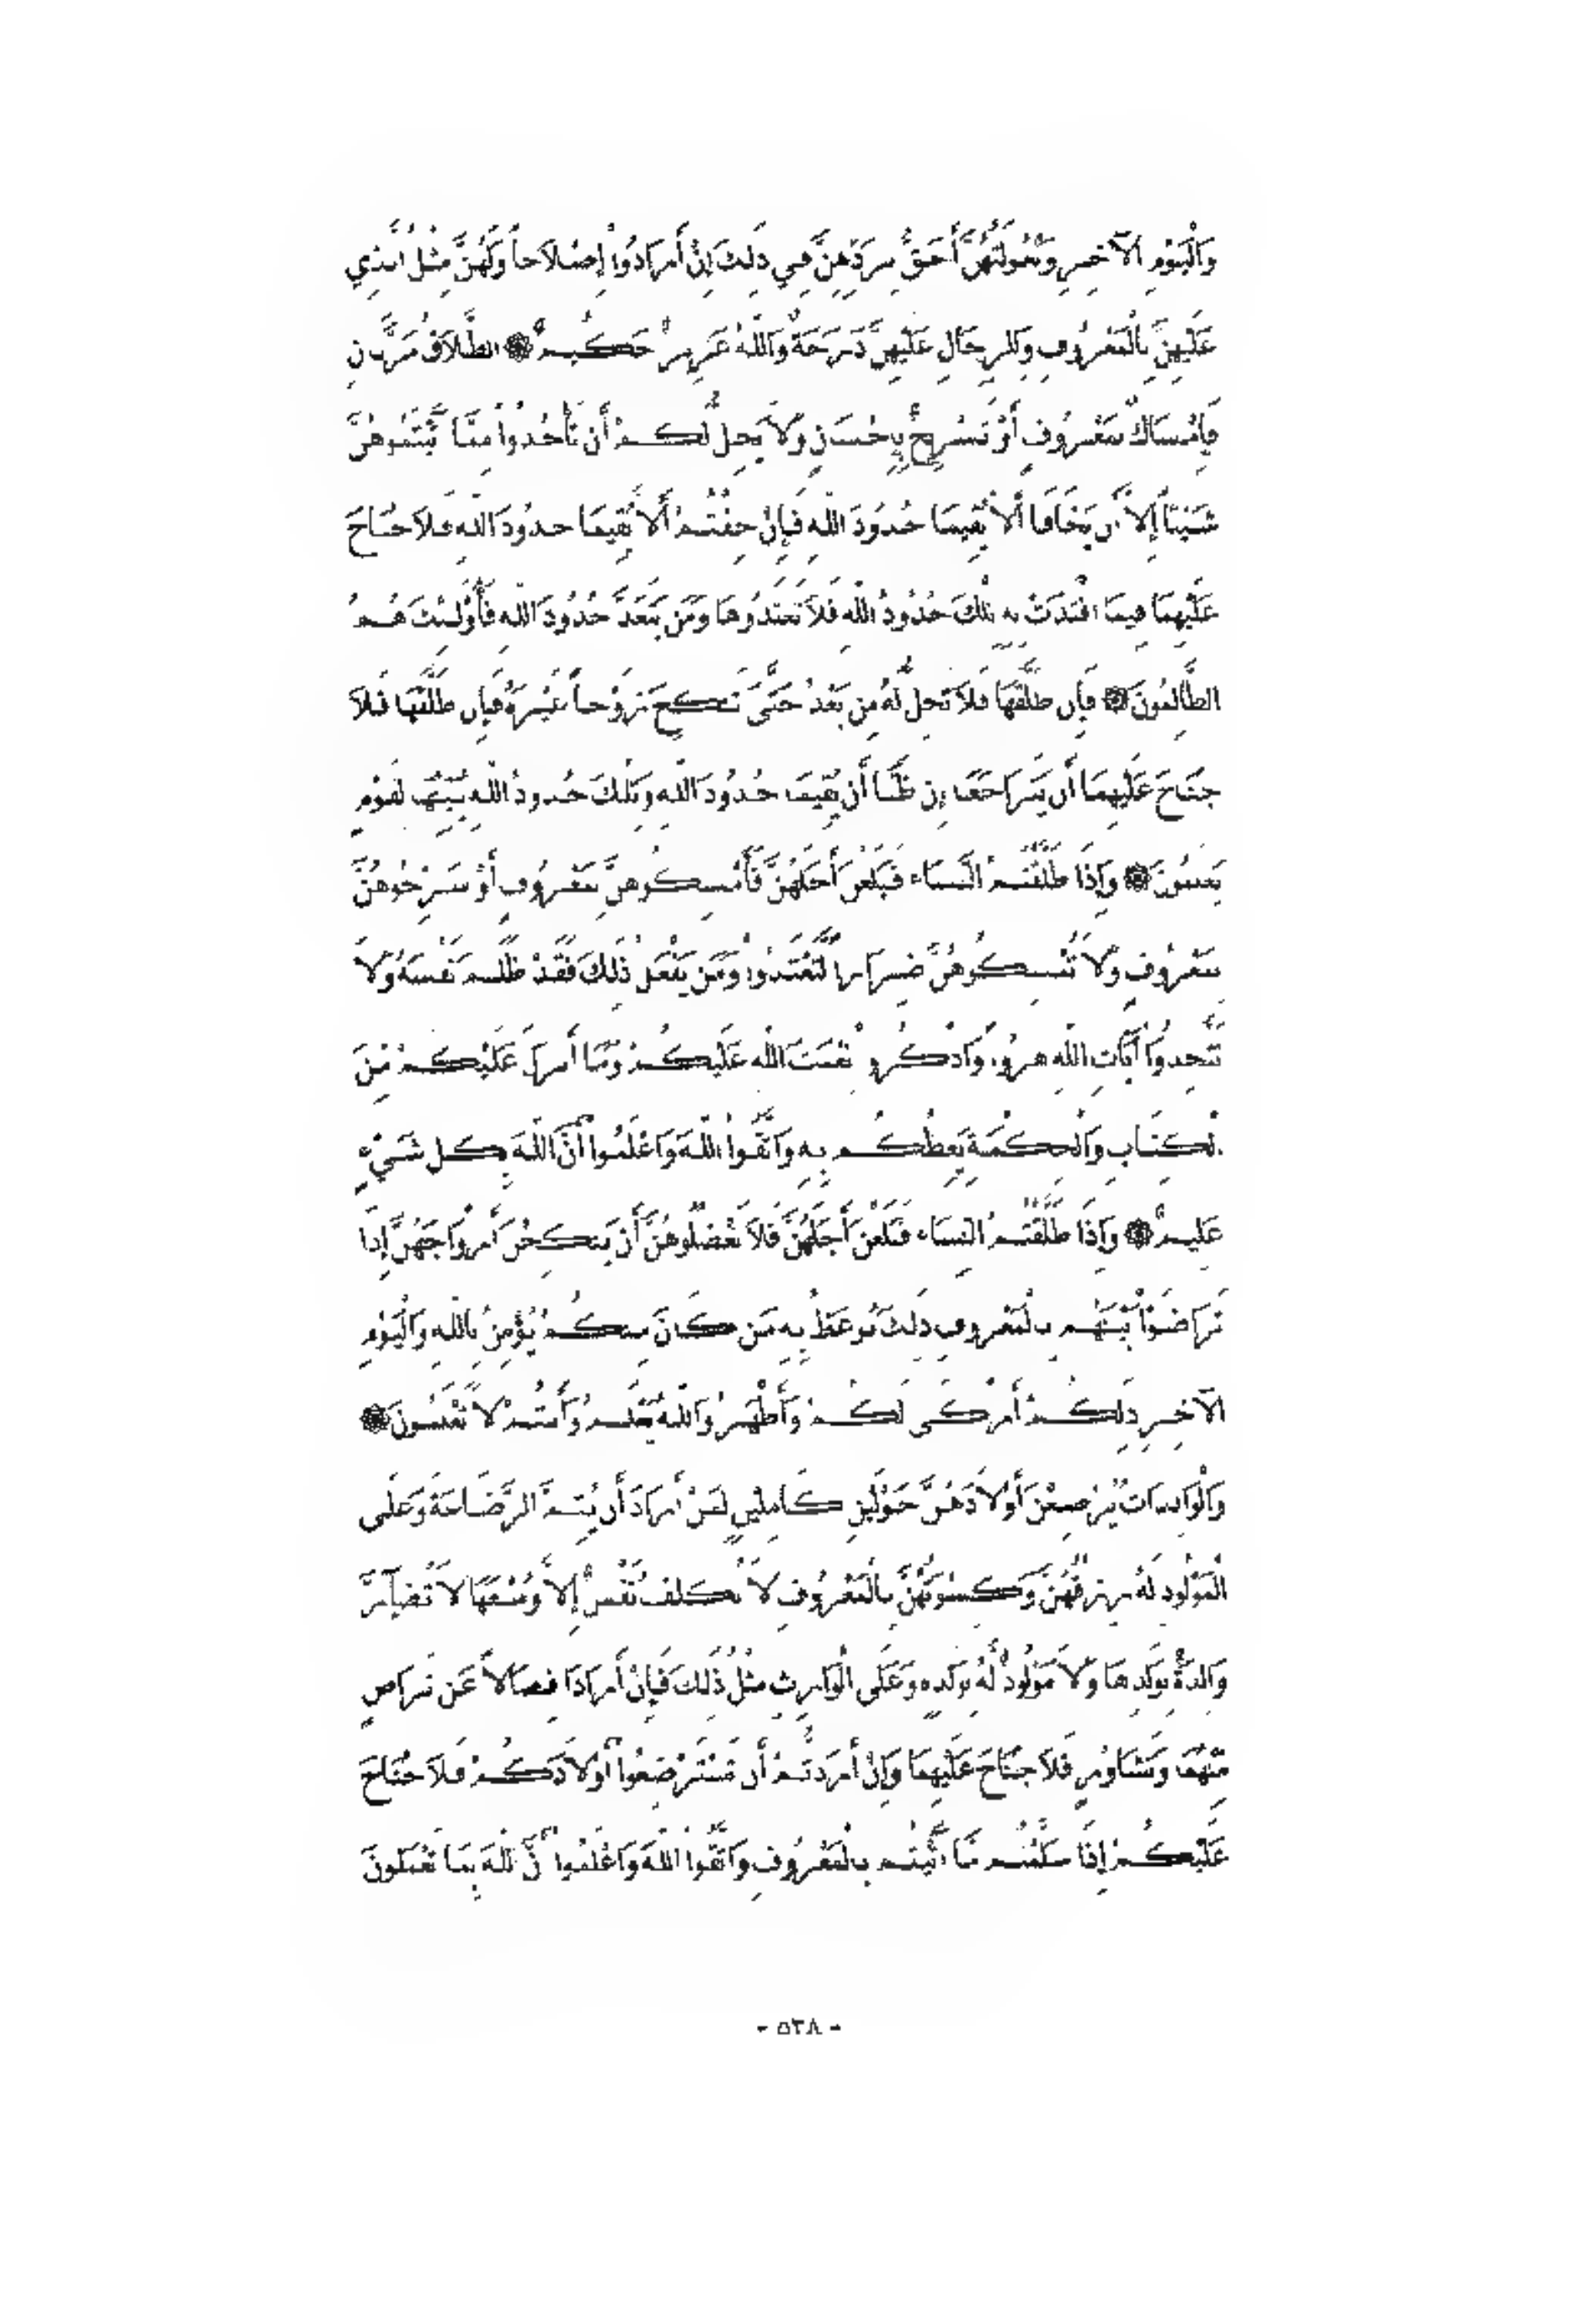 وَالْيَوْمِ الآخِرِ وَبُعُولَتُهُنَّ أَحَقُّ بِرَدِّهِنَّ فِي ذَلِكَ إِنْ أَرَادُواْ إِصْلاَحاً وَلَهُنَّ مِثْلُ الَّذِي
عَلَيْهِنَّ بِالْمَعْرُوفِ وَلِلرِّجَالِ عَلَيْهِنَّ دَرَجَةٌ وَاللّهُ عَزِيزٌ حَكُيمٌ ۞ الطَّلاَقُ مَرَّتَانِ
فَإِمْسَاكٌ بِمَعْرُوفٍ أَوْ تَسْرِيحٌ بِإِحْسَانٍ وَلاَ يَحِلُّ لَكُمْ أَن تَأْخُذُواْ مِمَّا آتَيْتُمُوهُنَّ
شَيْئاً إِلاَّ أَن يَخَافَا أَلاَّ يُقِيمَا حُدُودَ اللّهِ فَإِنْ خِفْتُمْ أَلاَّ يُقِيمَا حُدُودَ اللّهِ فَلاَ جُنَاحَ
عَلَيْهِمَا فِيمَا افْتَدَتْ بِهِ تِلْكَ حُدُودُ اللّهِ فَلاَ تَعْتَدُوهَا وَمَن يَتَعَدَّ حُدُودَ اللّهِ فَأُوْلَئِكَ هُمُ
الظَّالِمُونَ ۞ فَإِن طَلَّقَهَا فَلاَ تَحِلُّ لَهُ مِن بَعْدُ حَتَّىَ تَنكِحَ زَوْجاً غَيْرَهُ فَإِن طَلَّقَهَا فَلاَ
جُنَاحَ عَلَيْهِمَا أَن يَتَرَاجَعَا إِن ظَنَّا أَن يُقِيمَا حُدُودَ اللّهِ وَتِلْكَ حُدُودُ اللّهِ يُبَيِّنُهَا لِقَوْمٍ
يَعْلَمُونَ ۞ وَإِذَا طَلَّقْتُمُ النِّسَاء فَبَلَغْنَ أَجَلَهُنَّ فَأَمْسِكُوهُنَّ بِمَعْرُوفٍ أَوْ سَرِّحُوهُنَّ
بِمَعْرُوفٍ وَلاَ تُمْسِكُوهُنَّ ضِرَاراً لِّتَعْتَدُواْ وَمَن يَفْعَلْ ذَلِكَ فَقَدْ ظَلَمَ نَفْسَهُ وَلاَ
تَتَّخِذُوَاْ آيَاتِ اللّهِ هُزُواً وَاذْكُرُواْ نِعْمَتَ اللّهِ عَلَيْكُمْ وَمَا أَنزَلَ عَلَيْكُمْ مِّنَ
الْكِتَابِ وَالْحِكْمَةِ يَعِظُكُم بِهِ وَاتَّقُواْ اللّهَ وَاعْلَمُواْ أَنَّ اللّهَ بِكُلِّ شَيْءٍ
عَلِيمٌ ۞ وَإِذَا طَلَّقْتُمُ النِّسَاء فَبَلَغْنَ أَجَلَهُنَّ فَلاَ تَعْضُلُوهُنَّ أَن يَنكِحْنَ أَزْوَاجَهُنَّ إِذَا
تَرَاضَوْاْ بَيْنَهُم بِالْمَعْرُوفِ ذَلِكَ يُوعَظُ بِهِ مَن كَانَ مِنكُمْ يُؤْمِنُ بِاللّهِ وَالْيَوْمِ
الآخِرِ ذَلِكُمْ أَزْكَى لَكُمْ وَأَطْهَرُ وَاللّهُ يَعْلَمُ وَأَنتُمْ لاَ تَعْلَمُونَ ۞
وَالْوَالِدَاتُ يُرْضِعْنَ أَوْلاَدَهُنَّ حَوْلَيْنِ كَامِلَيْنِ لِمَنْ أَرَادَ أَن يُتِمَّ الرَّضَاعَةَ وَعلَى
الْمَوْلُودِ لَهُ رِزْقُهُنَّ وَكِسْوَتُهُنَّ بِالْمَعْرُوفِ لاَ تُكَلَّفُ نَفْسٌ إِلاَّ وُسْعَهَا لاَ تُضَآرَّ
وَالِدَةٌ بِوَلَدِهَا وَلاَ مَوْلُودٌ لَّهُ بِوَلَدِهِ وَعَلَى الْوَارِثِ مِثْلُ ذَلِكَ فَإِنْ أَرَادَا فِصَالاً عَن تَرَاضٍ
مِّنْهُمَا وَتَشَاوُرٍ فَلاَ جُنَاحَ عَلَيْهِمَا وَإِنْ أَرَدتُّمْ أَن تَسْتَرْضِعُواْ أَوْلاَدَكُمْ فَلاَ جُنَاحَ
عَلَيْكُمْ إِذَا سَلَّمْتُم مَّا آتَيْتُم بِالْمَعْرُوفِ وَاتَّقُواْ اللّهَ وَاعْلَمُواْ أَنَّ اللّهَ بِمَا تَعْمَلُونَ
- ٥٣٨ -